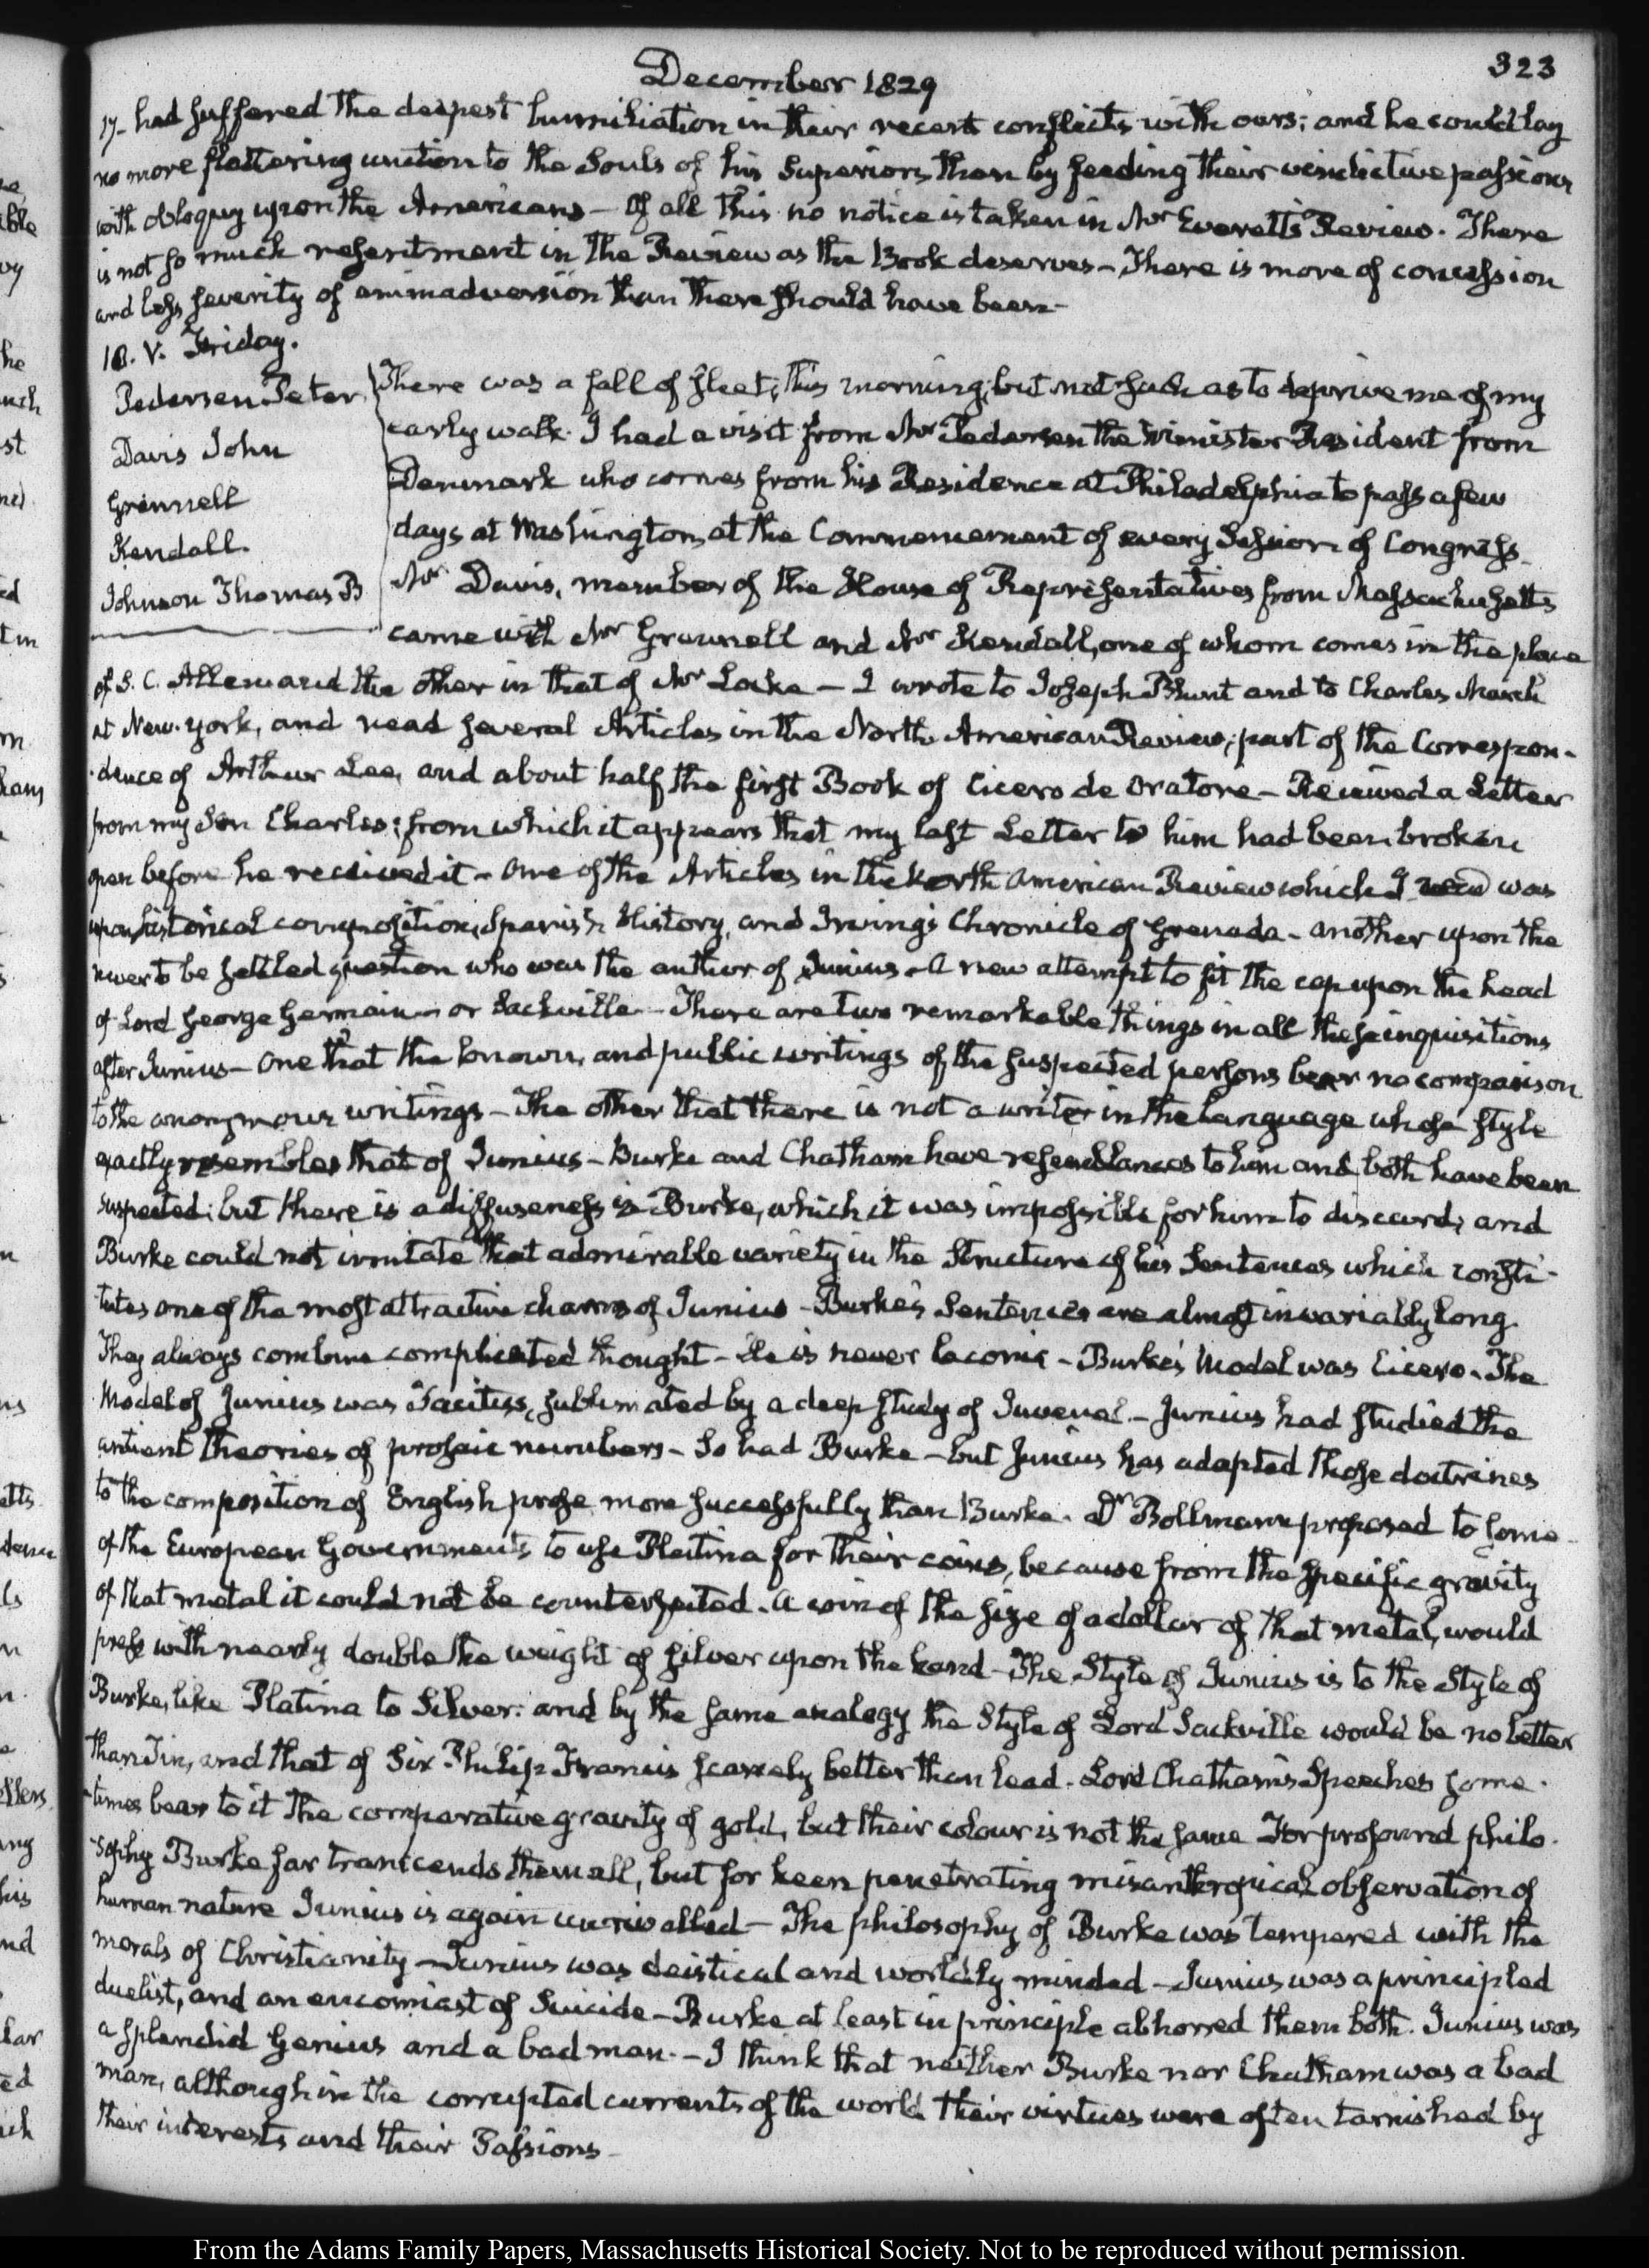 December 1829
323
17. had suffered the deepest humiliation in their recent conflicts with ours; and he could lay
no more flattering unction to the Souls of his Superiors, than by feeding their vindictive passions
with obloquy upon the Americans — Of all this no notice is taken in Mr Everett's Review. There
is not so much resentment in the Review as the Book deserves — There is more of concession
and less severity of animadversion than there should have been —
18. V. Friday.
Pedersen Peter
Davis John
Grinnell
Kendall.
Johnson Thomas B
There was a fall of sleet, this morning; but not such as to deprive me of my
early walk. I had a visit from Mr Pedersen the Minister Resident from
Denmark who comes from his Residence at Philadelphia to pass a few
days at Washington, at the Commencement of every Session of Congress —
Mr Davis, member of the House of Representatives from Massachusetts
came with Mr Grennell and Mr Kendall, one of whom comes in the place
of S. C. Allen and the other in that of Mr Locke — I wrote to Joseph Blunt and to Charles March
at New-York, and read several Articles in the North American Review, part of the Correspon-
-dence of Arthur Lee, and about half the first Book of Cicero de Oratore — Received a Letter
from my Son Charles; from which it appears that my last Letter to him had been broken
open before he received it — One of the Articles in the North American Review which I read was
upon historical composition, Spanish History, and Irving's Chronicle of Grenada — another upon the
never to be settled question who was the author of Junius — A new attempt to fit the cap upon the head
of Lord George Germain — or Sackville — There are two remarkable things in all these inquisitions
after Junius — One that the known, and public writings of the suspected persons bear no comparison
to the anonymous writings — The other that there is not a writer in the language whose style
exactly resembles that of Junius — Burke and Chatham have resemblances to him and both have been
suspected; but there is a diffuseness in Burke, which it was impossible for him to discard, and
Burke could not imitate that admirable variety in the Structure of his Sentences which consti-
-tutes one of the most attractive charms of Junius — Burke's Sentences are almost invariably long.
They always combine complicated thought — He is never laconic — Burke's Model was Cicero. The
Model of Junius was Tacitus, sublimated by a deep study of Juvenal — Junius had studied the
antient theories of prosaic numbers — So had Burke — but Junius has adapted those doctrines
to the composition of English prose more successfully than Burke. Dr Bollmann proposed to some
of the European Governments to use Platina for their coins, because from the specific gravity
of that metal it could not be counterfeited. A coin of the size of a dollar of that metal, would
press with nearly double the weight of silver upon the hand — The Style of Junius is to the Style of
Burke, like Platina to Silver: and by the same analogy the Style of Lord Sackville would be no better
than Tin, and that of Sir Philip Francis scarcely better than lead. Lord Chatham's Speeches some-
-times bear to it the comparative gravity of gold, but their colour is not the same For profound philo-
-sophy Burke far transcends them all, but for keen penetrating misanthropical observation of
human nature Junius is again unrivalled — The philosophy of Burke was tempered with the
morals of Christianity — Junius was deistical and worldly minded — Junius was a principled
duelist, and an encomiast of Suicide — Burke at least in principle abhorred them both. Junius was
a splendid Genius and a bad man. — I think that neither Burke nor Chatham was a bad
man, although in the corrupted currents of the world their virtues were often tarnished by
their interests and their Passions —
From the Adams Family Papers, Massachusetts Historical Society. Not to be reproduced without permission.